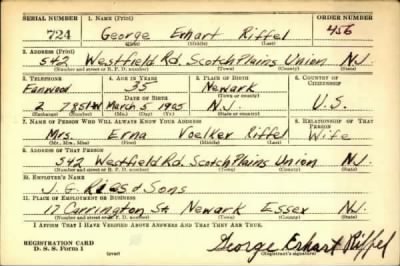 SERIAL NUMBER 1. NAME (Print) ORDER NUMBER
724 George Erhart Riffel 456
(First) (Middle) (Last)
2. ADDRESS (Print)
542 Westfield Rd. Scotch Plains Union N.J.
(Number and street or R. F. D. number) (Town) (County) (State)
3. TELEPHONE 4. AGE IN YEARS 5. PLACE OF BIRTH 6. COUNTRY OF CITIZENSHIP
Fanwood 35 Newark
DATE OF BIRTH (Town or county)
2 March 5 1905 N.J. U.S.
(Mo.) (Day) (Yr.) (State or country)
7. NAME OF PERSON WHO WILL ALWAYS KNOW YOUR ADDRESS 8. RELATIONSHIP OF THAT PERSON
Mrs. Erna Voelker Riffel Wife
(Mr., Mrs., Miss) (First) (Middle) (Last)
9. ADDRESS OF THAT PERSON
542 Westfield Rd. Scotch Plains Union N.J.
(Number and street or R. F. D. number) (Town) (County) (State)
10. EMPLOYER'S NAME
J. G. & Sons
11. PLACE OF EMPLOYMENT OR BUSINESS
17 Carrington St. Newark Essex N.J.
(Number and street or R. F. D. number) (Town) (County) (State)
I AFFIRM THAT I HAVE VERIFIED ABOVE ANSWERS AND THAT THEY ARE TRUE.
REGISTRATION CARD
D. S. S. Form 1 (over) George Erhart Riffel
(Registrant's signature)